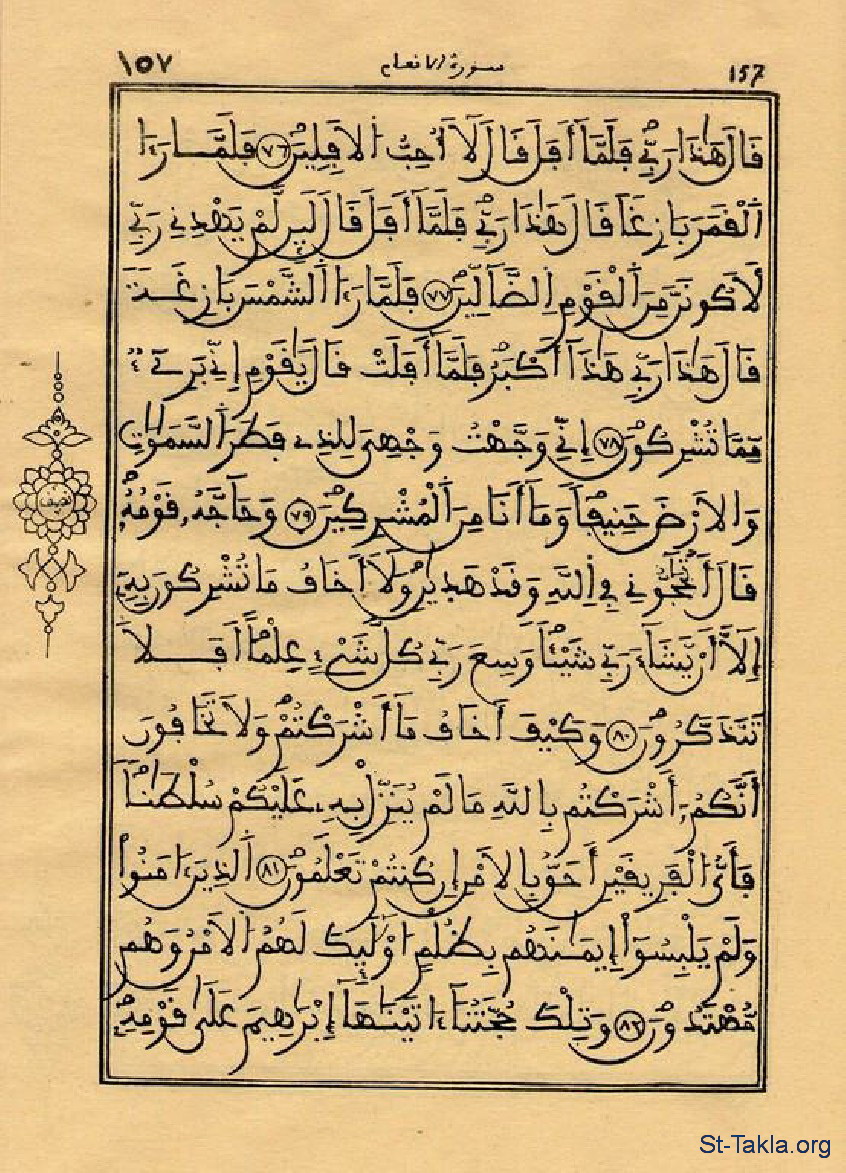 157 سورة الانعام ١٥٧
قَالَ هَٰذَا رَبِّي فَلَمَّا أَفَلَ قَالَ لَا أُحِبُّ الَافِلِينَ ٧٦ فَلَمَّا رَءَا
اَلْقَمَرَ بَازِغاً قَالَ هَٰذَا رَبِّي فَلَمَّا أَفَلَ قَالَ لَئِن لَّمْ يَهْدِنِي رَبِّي
لَأَكُونَنَّ مِنَ اَلْقَوْمِ اِلضَّالِّينَ ٧٧ فَلَمَّا رَءَا اَلشَّمْسَ بَازِغَةً
قَالَ هَٰذَا رَبِّي هَٰذَا أَكْبَرُ فَلَمَّا أَفَلَتْ قَالَ يَٰقَوْمِ إِنِّي بَرِيٓءٌ
مِّمَّا تُشْرِكُونَ ٧٨ إِنِّي وَجَّهْتُ وَجْهِيَ لِلذِي فَطَرَ اَلسَّمَٰوَٰتِ
وَالَارْضَ حَنِيفاً وَمَا أَنَا مِنَ اَلْمُشْرِكِينَ ٧٩ وَحَاجَّهُۥ قَوْمُهُۥ
قَالَ أَتُحَٰجُّونِي فِي اِللَّهِ وَقَدْ هَدَيٰنِ وَلَا أَخَافُ مَا تُشْرِكُونَ بِهِۦ
إِلَّا أَنْ يَّشَاءَ رَبِّي شَيْـٔاً وَسِعَ رَبِّي كُلَّ شَيْءٍ عِلْماً أَفَلَا
تَتَذَكَّرُونَ ٨٠ وَكَيْفَ أَخَافُ مَا أَشْرَكْتُمْ وَلَا تَخَافُونَ
أَنَّكُمُۥ أَشْرَكْتُم بِاللَّهِ مَا لَمْ يُنَزِّلْ بِهِۦ عَلَيْكُمْ سُلْطَٰناً
فَأَيُّ اَلْفَرِيقَيْنِ أَحَقُّ بِالَامْنِ إِن كُنتُمْ تَعْلَمُونَ ٨١ اَلذِينَ ءَامَنُواْ
وَلَمْ يَلْبِسُوٓاْ إِيمَٰنَهُم بِظُلْمٍ اُوْلَٰئِكَ لَهُمُ اَلَامْنُ وَهُم
مُّهْتَدُونَ ٨٢ وَتِلْكَ حُجَّتُنَا ءَاتَيْنَٰهَا إِبْرَٰهِيمَ عَلَىٰ قَوْمِهِۦ
St-Takla.org